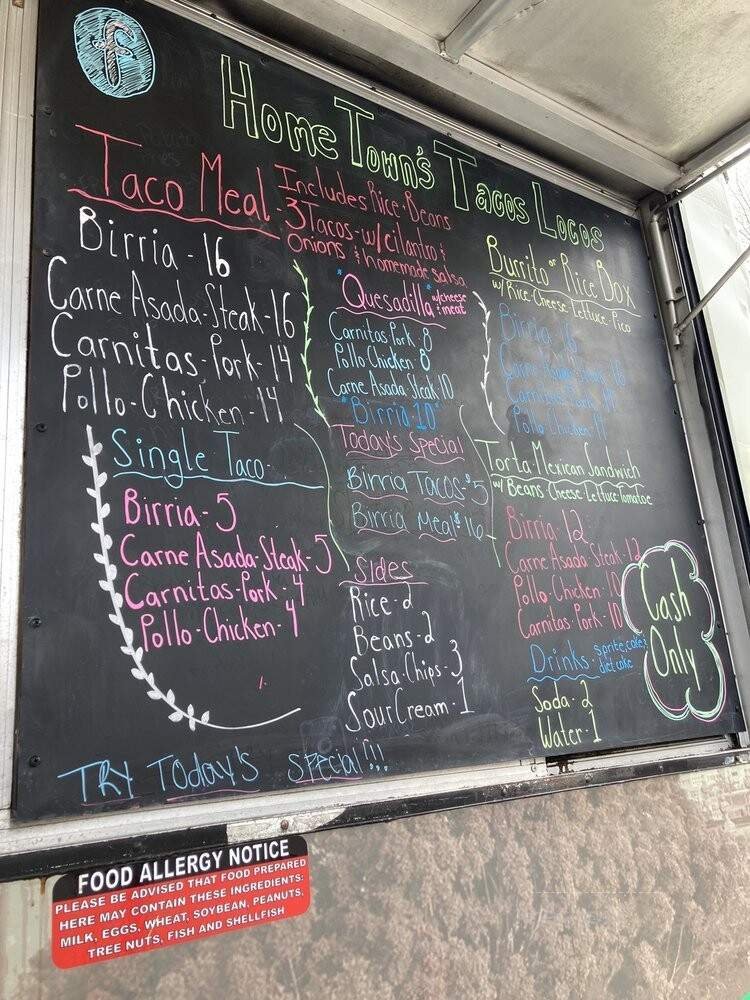 f
Home Town's Tacos Locos
Taco Meal -
Includes Rice · Beans
3 Tacos - w/ cilantro &
Onions & homemade salsa
Birria - 16
Carne Asada - Steak - 16
Carnitas - Pork - 14
Pollo - Chicken - 14
Single Taco
Birria - 5
Carne Asada - Steak - 5
Carnitas - Pork - 4
Pollo - Chicken - 4
Quesadilla w/ cheese & meat
Carnitas Pork 8
Pollo Chicken 8
Carne Asada Steak 10
Birria 10
Today's Special
Birria Tacos $5
Birria Meal $16
Sides
Rice - 2
Beans - 2
Salsa - Chips - 3
Sour Cream - 1
Burrito or Rice Box
w/ Rice - Cheese - Lettuce - Pico
Birria
Carne Asada Steak
Carnitas Pork
Pollo Chicken
Torta - Mexican Sandwich
w/ Beans Cheese Lettuce Tomatoe
Birria 12
Carne Asada Steak 12
Pollo Chicken 10
Carnitas - Pork 10
Drinks - sprite, coke, diet coke
Soda - 2
Water - 1
Cash
Only
TRY TODAY'S SPECIAL!!!
FOOD ALLERGY NOTICE
PLEASE BE ADVISED THAT FOOD PREPARED
HERE MAY CONTAIN THESE INGREDIENTS:
MILK, EGGS, WHEAT, SOYBEAN, PEANUTS,
TREE NUTS, FISH AND SHELLFISH